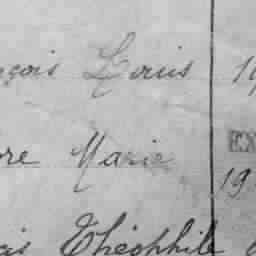 çois Louis 19
re Marie EX
19
is Théophile